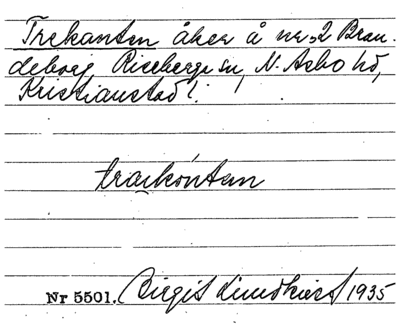 Trekanten åker å nr 2 Bran-
deborg Riseberga sn, N. Åsbo hd,
Kristianstad l.
träkónten
Nr 5501. Birgit Lindkvist 1935